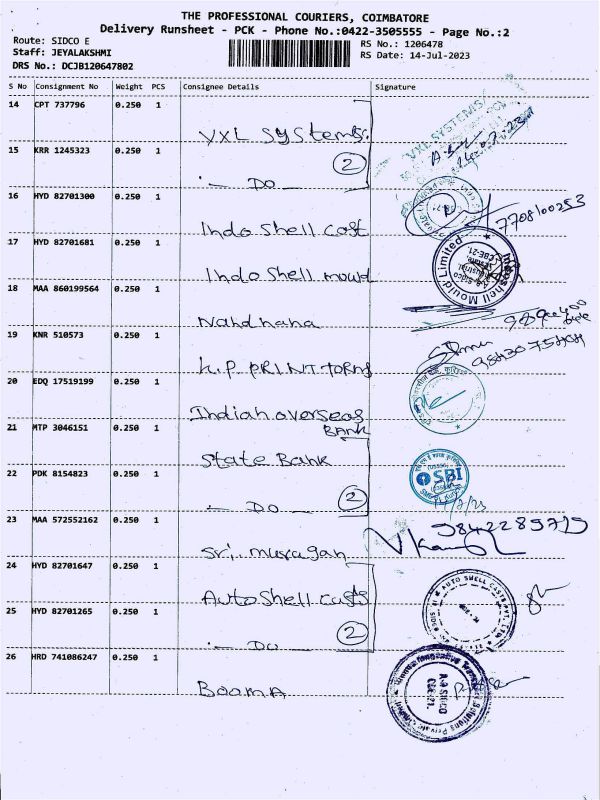 THE PROFESSIONAL COURIERS, COIMBATORE
Delivery Runsheet - PCK - Phone No.:0422-3505555 - Page No.:2
Route: SIDCO E
RS No.: 1206478
Staff: JEYALAKSHMI
RS Date: 14-Jul-2023
DRS No.: DCJB120647802
S No Consignment No Weight PCS Consignee Details Signature
14 CPT 737796 0.250 1 VXL Systems
VXL SYSTEMS
15 KRR 1245323 0.250 1 - DO - 2
16 HYD 82701300 0.250 1 Indo Shell Cast 7708100253
17 HYD 82701681 0.250 1 Indo Shell mould
Indoshell Mould Limited
18 MAA 860199564 0.250 1 Nandhana
19 KNR 510573 0.250 1 K.P PRINT TORNS
20 EDQ 17519199 0.250 1 Indian overseas BANK
21 MTP 3046151 0.250 1 State Bank
SBI
22 PDK 8154823 0.250 1 - DO - 2
23 MAA 572552162 0.250 1 Sri. murugan 9842285715
24 HYD 82701647 0.250 1 Auto Shell Casts
AUTO SHELL CASTS PVT. LTD.
25 HYD 82701265 0.250 1 - DO - 2
26 HRD 741086247 0.250 1 BOOMA